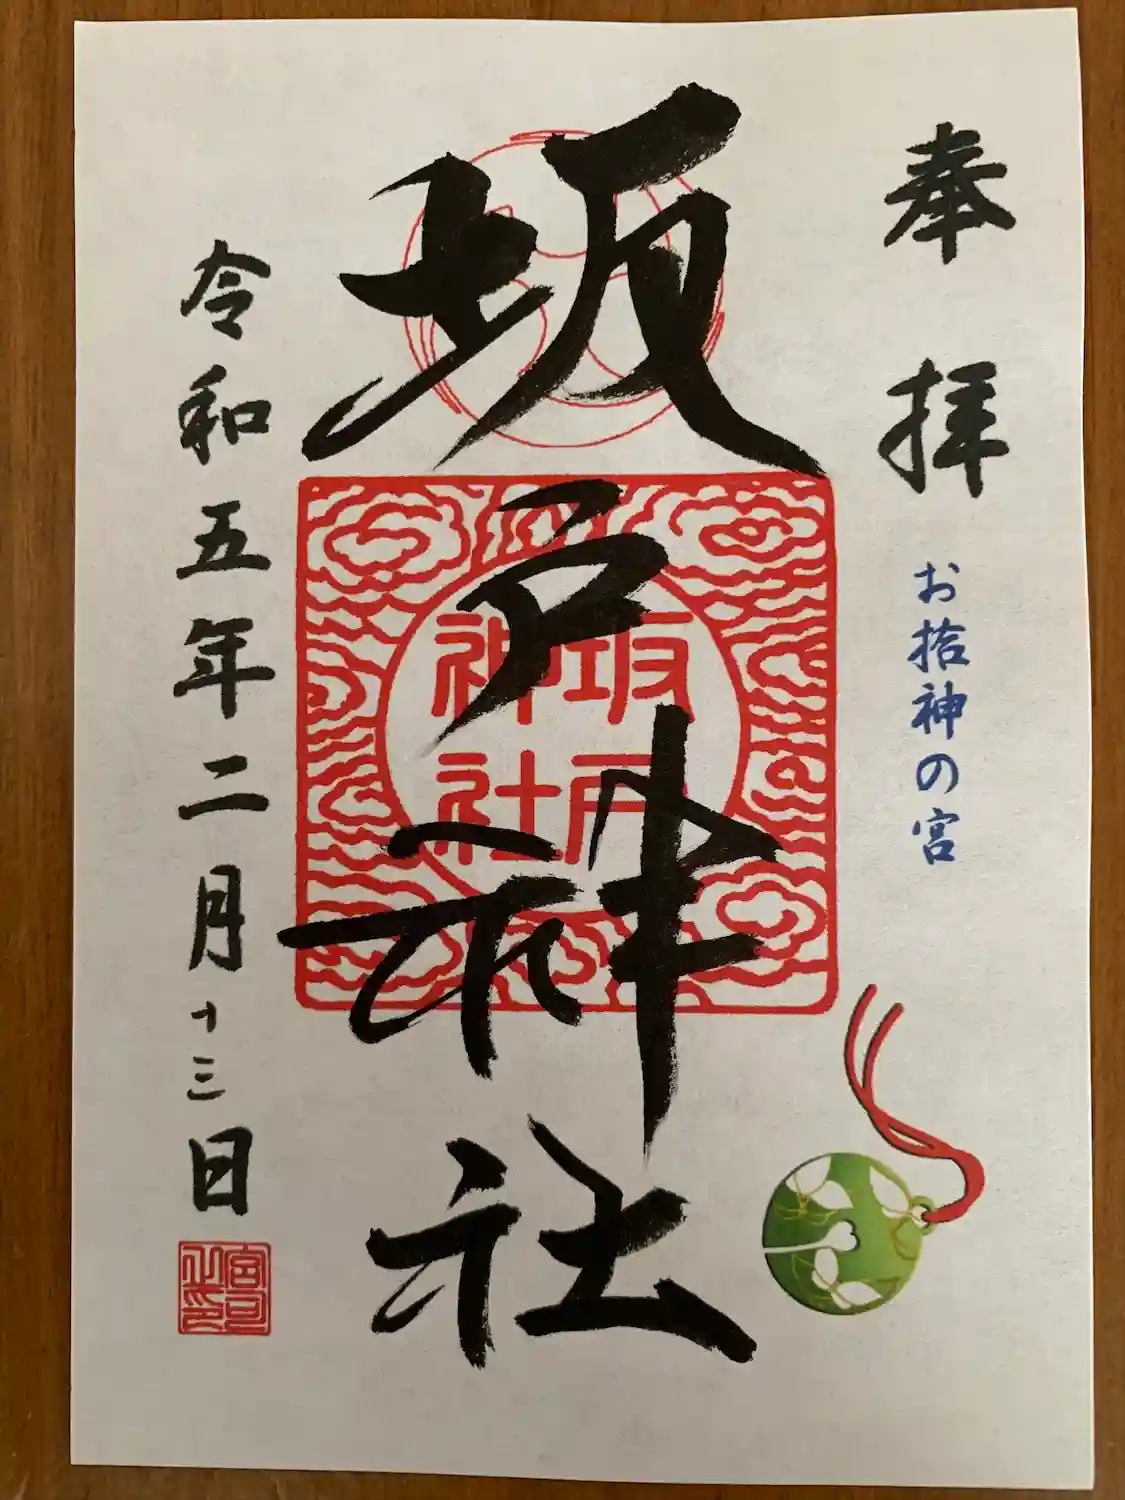 奉拝
お捨神の宮
坂戸神社
坂戸
神社
令和五年二月十三日
宮司
之印